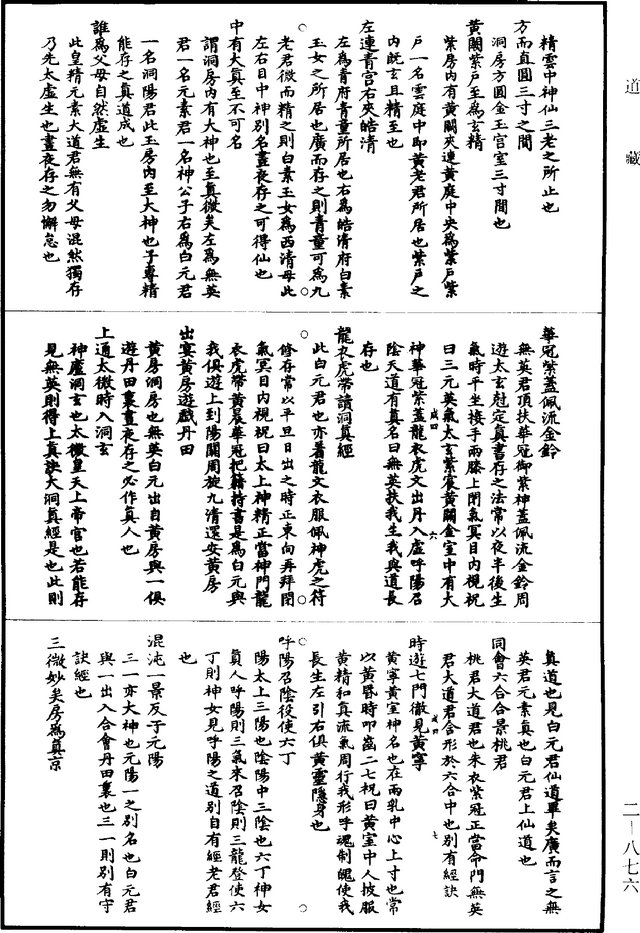 道藏
精雲中神仙三老之所止也
方而直圓三寸之間
洞房方圓金玉宫室三寸間也
黄闕紫戶至爲玄精
紫房内有黄闕夾連黄庭中央爲紫戶紫
戶一名雲庭中卽黄老君所居也紫戶之
内旣玄且精至也
左連青宫右夾皓清
左爲青府青童所居也右爲皓清府白素
玉女之所居也廣而存之則青童可爲九
老君微而精之則白素玉女爲西清母此
左右目中神别名晝夜存之可得仙也
中有大真至不可名
謂洞房内有大神也至真微矣左爲無英
君一名元素君一名神公子右爲白元君
一名洞陽君此玉房内至大神也子專精
能存之真道成也
誰爲父母自然虛生
此皇精元素大道君無有父母混然獨存
乃先太虛生也晝夜存之勿懈怠也
華冠紫蓋佩流金鈴
無英君頂扶華冠御紫神蓋佩流金鈴周
遊太玄尅定真書存之法常以夜半後生
氣時平坐接手兩膝上閉氣冥目内視祝
曰三元英氣太玄紫寢黄闕金室中有大
神華冠紫蓋龍衣虎文出丹入虛呼陽召
陰天道有真名曰無英扶我生我與道長
存也
龍衣虎帶讀洞真經
此白元君也亦著龍文衣服佩神虎之符
修存常以平旦日出之時正東向再拜閉
氣冥目内視祝曰太上神精正當神門龍
衣虎帶黄晨華冠把籍持書是爲白元與
我俱遊上到陽關周旋九清還安黄房
出宴黄房遊戲丹田
黄房洞房也無英白元出自黄房與一俱
遊丹田裏晝夜存之必作真人也
上通太微時入洞玄
神廬洞玄也太微皇天上帝官也若能存
見無英則得上真訣大洞真經是也此則
真道也見白元君仙道畢矣廣而言之無
英君元素真也白元君上仙道也
同會六合合景桃君
桃君大道君也朱衣紫冠正當命門無英
君大道君合形於六合中也别有經訣
時遊七門徹見黄寧
黄寧黄室神名也在兩乳中心上寸也常
以黄昏時叩齒二七祝曰黄室中人披服
黄精和真流氣周行我形呼魂制魄使我
長生左引右俱黄靈隱身也
呼陽召陰役使六丁
陽太上三陽也陰陽中三陰也六丁神女
真人呼陽則三氣來召陰則三龍登使六
丁則神女見呼陽之道别自有經老君經
也
混沌一景反于元陽
三一亦大神也元陽一之别名也白元君
與一出入合會丹田裏也三一則别有守
訣經也
三微妙矣房爲真京
二—八七六